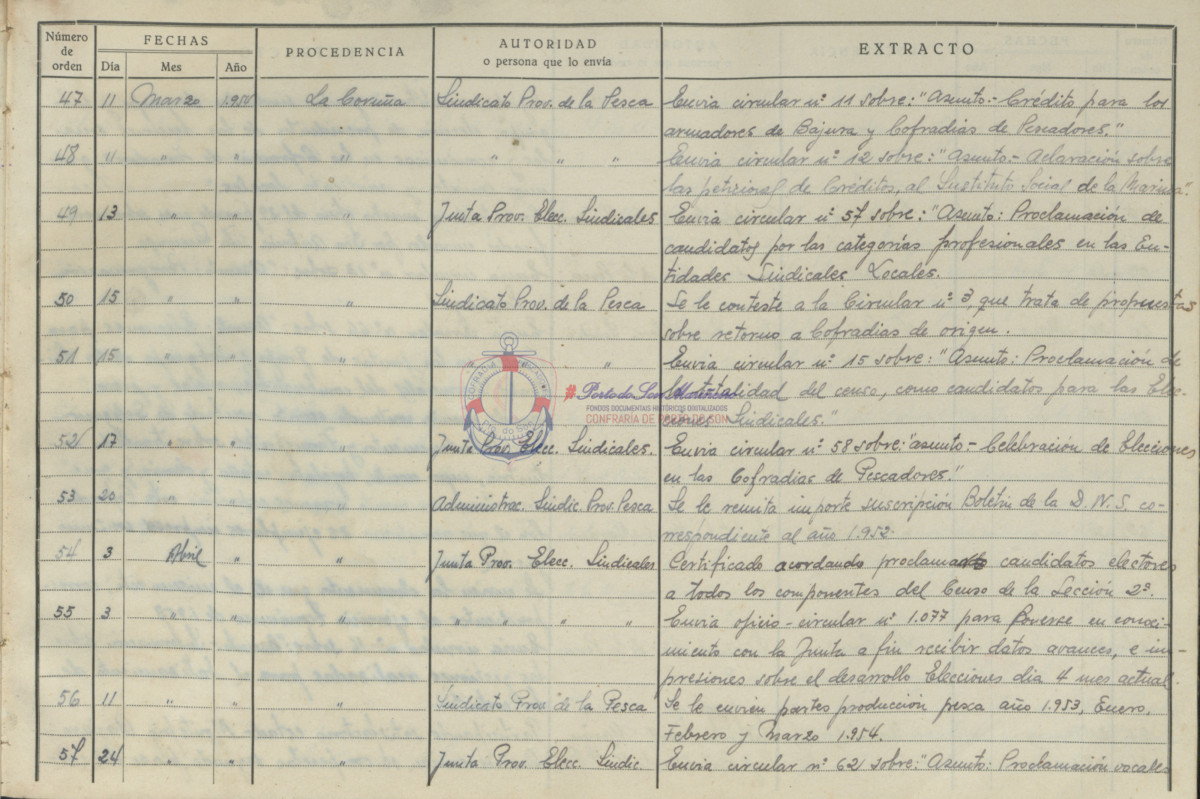 Número de orden FECHAS PROCEDENCIA AUTORIDAD o persona que lo envía EXTRACTO
Día Mes Año
47 11 Marzo 1.954 La Coruña Sindicato Prov. de la Pesca Envia circular nº 11 sobre: "Asunto.- Crédito para los
armadores de Bajura y Cofradias de Pescadores."
48 11 " " " " " " Envia circular nº 12 sobre: "Asunto.- Aclaración sobre
las peticiones de Créditos, al Instituto Social de la Marina".
49 13 " " " Junta Prov. Elecc. Sindicales Envia circular nº 57 sobre: "Asunto: Proclamación de
candidatos por las categorías profesionales en las En-
tidades Sindicales Locales.
50 15 " " " Sindicato Prov. de la Pesca Se le conteste a la Circular nº 3, que trata de propuestas
sobre retorno a Cofradias de origen.
51 15 " " " " Envia circular nº 15 sobre: "Asunto: Proclamación de
la totalidad del censo, como candidatos para las Elec-
ciones Sindicales."
52 17 " " " Junta Prov. Elecc. Sindicales. Envia circular nº 58 sobre: "asunto.- Celebración de Elecciones
en las Cofradias de Pescadores."
53 20 " " " Administrac. Sindic. Prov. Pesca Se le remita importe suscripción Boletín de la D.N.S. co-
rrespondiente al año 1.952.
54 3 Abril " " Junta Prov. Elecc. Sindicales Certificado acordando candidatos electores
a todos los componentes del Censo de la Sección 2ª.
55 3 " " " " " " " Envia oficio-circular nº 1.077 para ponerse en conoci-
miento con la Junta a fin recibir datos avances, e im-
presiones sobre el desarrollo Elecciones dia 4 mes actual.
56 11 " " " Sindicato Prov. de la Pesca Se le envien partes producción pesca año 1.953, Enero,
Febrero y Marzo 1.954.
57 24 " " " Junta Prov. Elecc. Sindic. Envia circular nº 62 sobre: "Asunto: Proclamación vocales
# Porto do Son
FONDOS DOCUMENTAIS HISTÓRICOS DIGITALIZADOS
CONFRARÍA DE PORTO DO SON